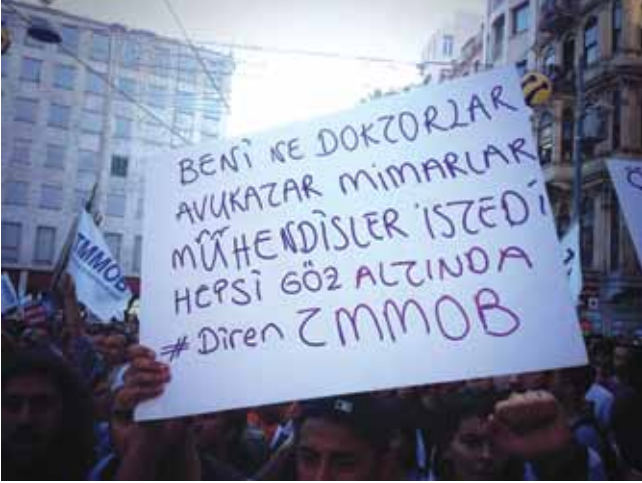 BENİ NE DOKTORLAR
AVUKATAR MİMARLAR
MÜHENDİSLER İSTEDİ
HEPSİ GÖZ ALTINDA
#Diren TMMOB
TMMOB